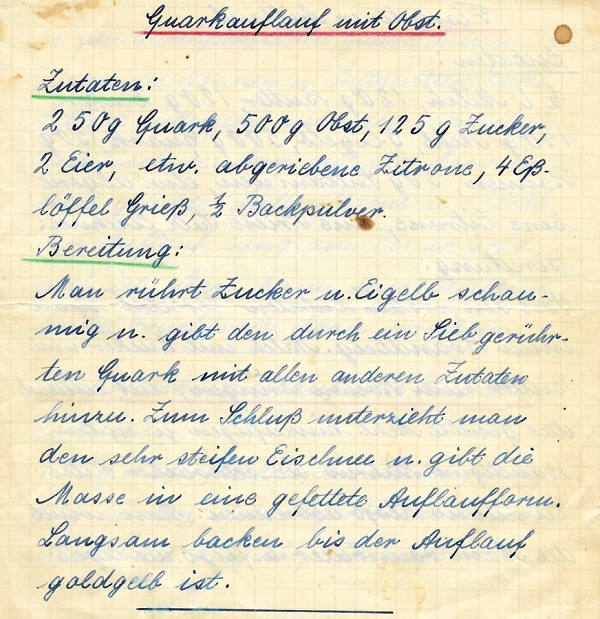 Quarkauflauf mit Obst.
Zutaten:
250g Quark, 500g Obst, 125 g Zucker,
2 Eier, etw. abgeriebene Zitrone, 4 Eß-
löffel Grieß, ½ Backpulver.
Bereitung:
Man rührt Zucker u. Eigelb schau-
mig u. gibt den durch ein Sieb gerühr-
ten Quark mit allen anderen Zutaten
hinzu. Zum Schluß unterzieht man
den sehr steifen Eischnee u. gibt die
Masse in eine gefettete Auflaufform.
Langsam backen bis der Auflauf
goldgelb ist.